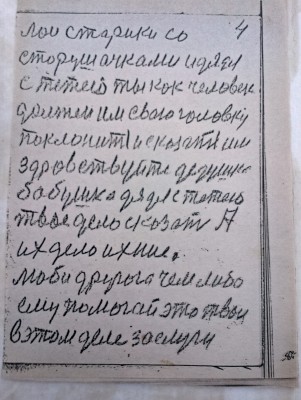 4
лои старики со
старушачками и дядя
с тетею ты как человек
должен им сваю головку
поклонить и сказать им
здровствуйте дедушка
бабушка дядя с тетею
твое дело сказать А
их дело ихние.
люби друрога чем либо
ему помогай это твои
в этом деле заслуги